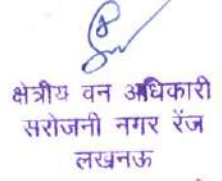 क्षेत्रीय वन अधिकारी
सरोजनी नगर रेंज
लखनऊ